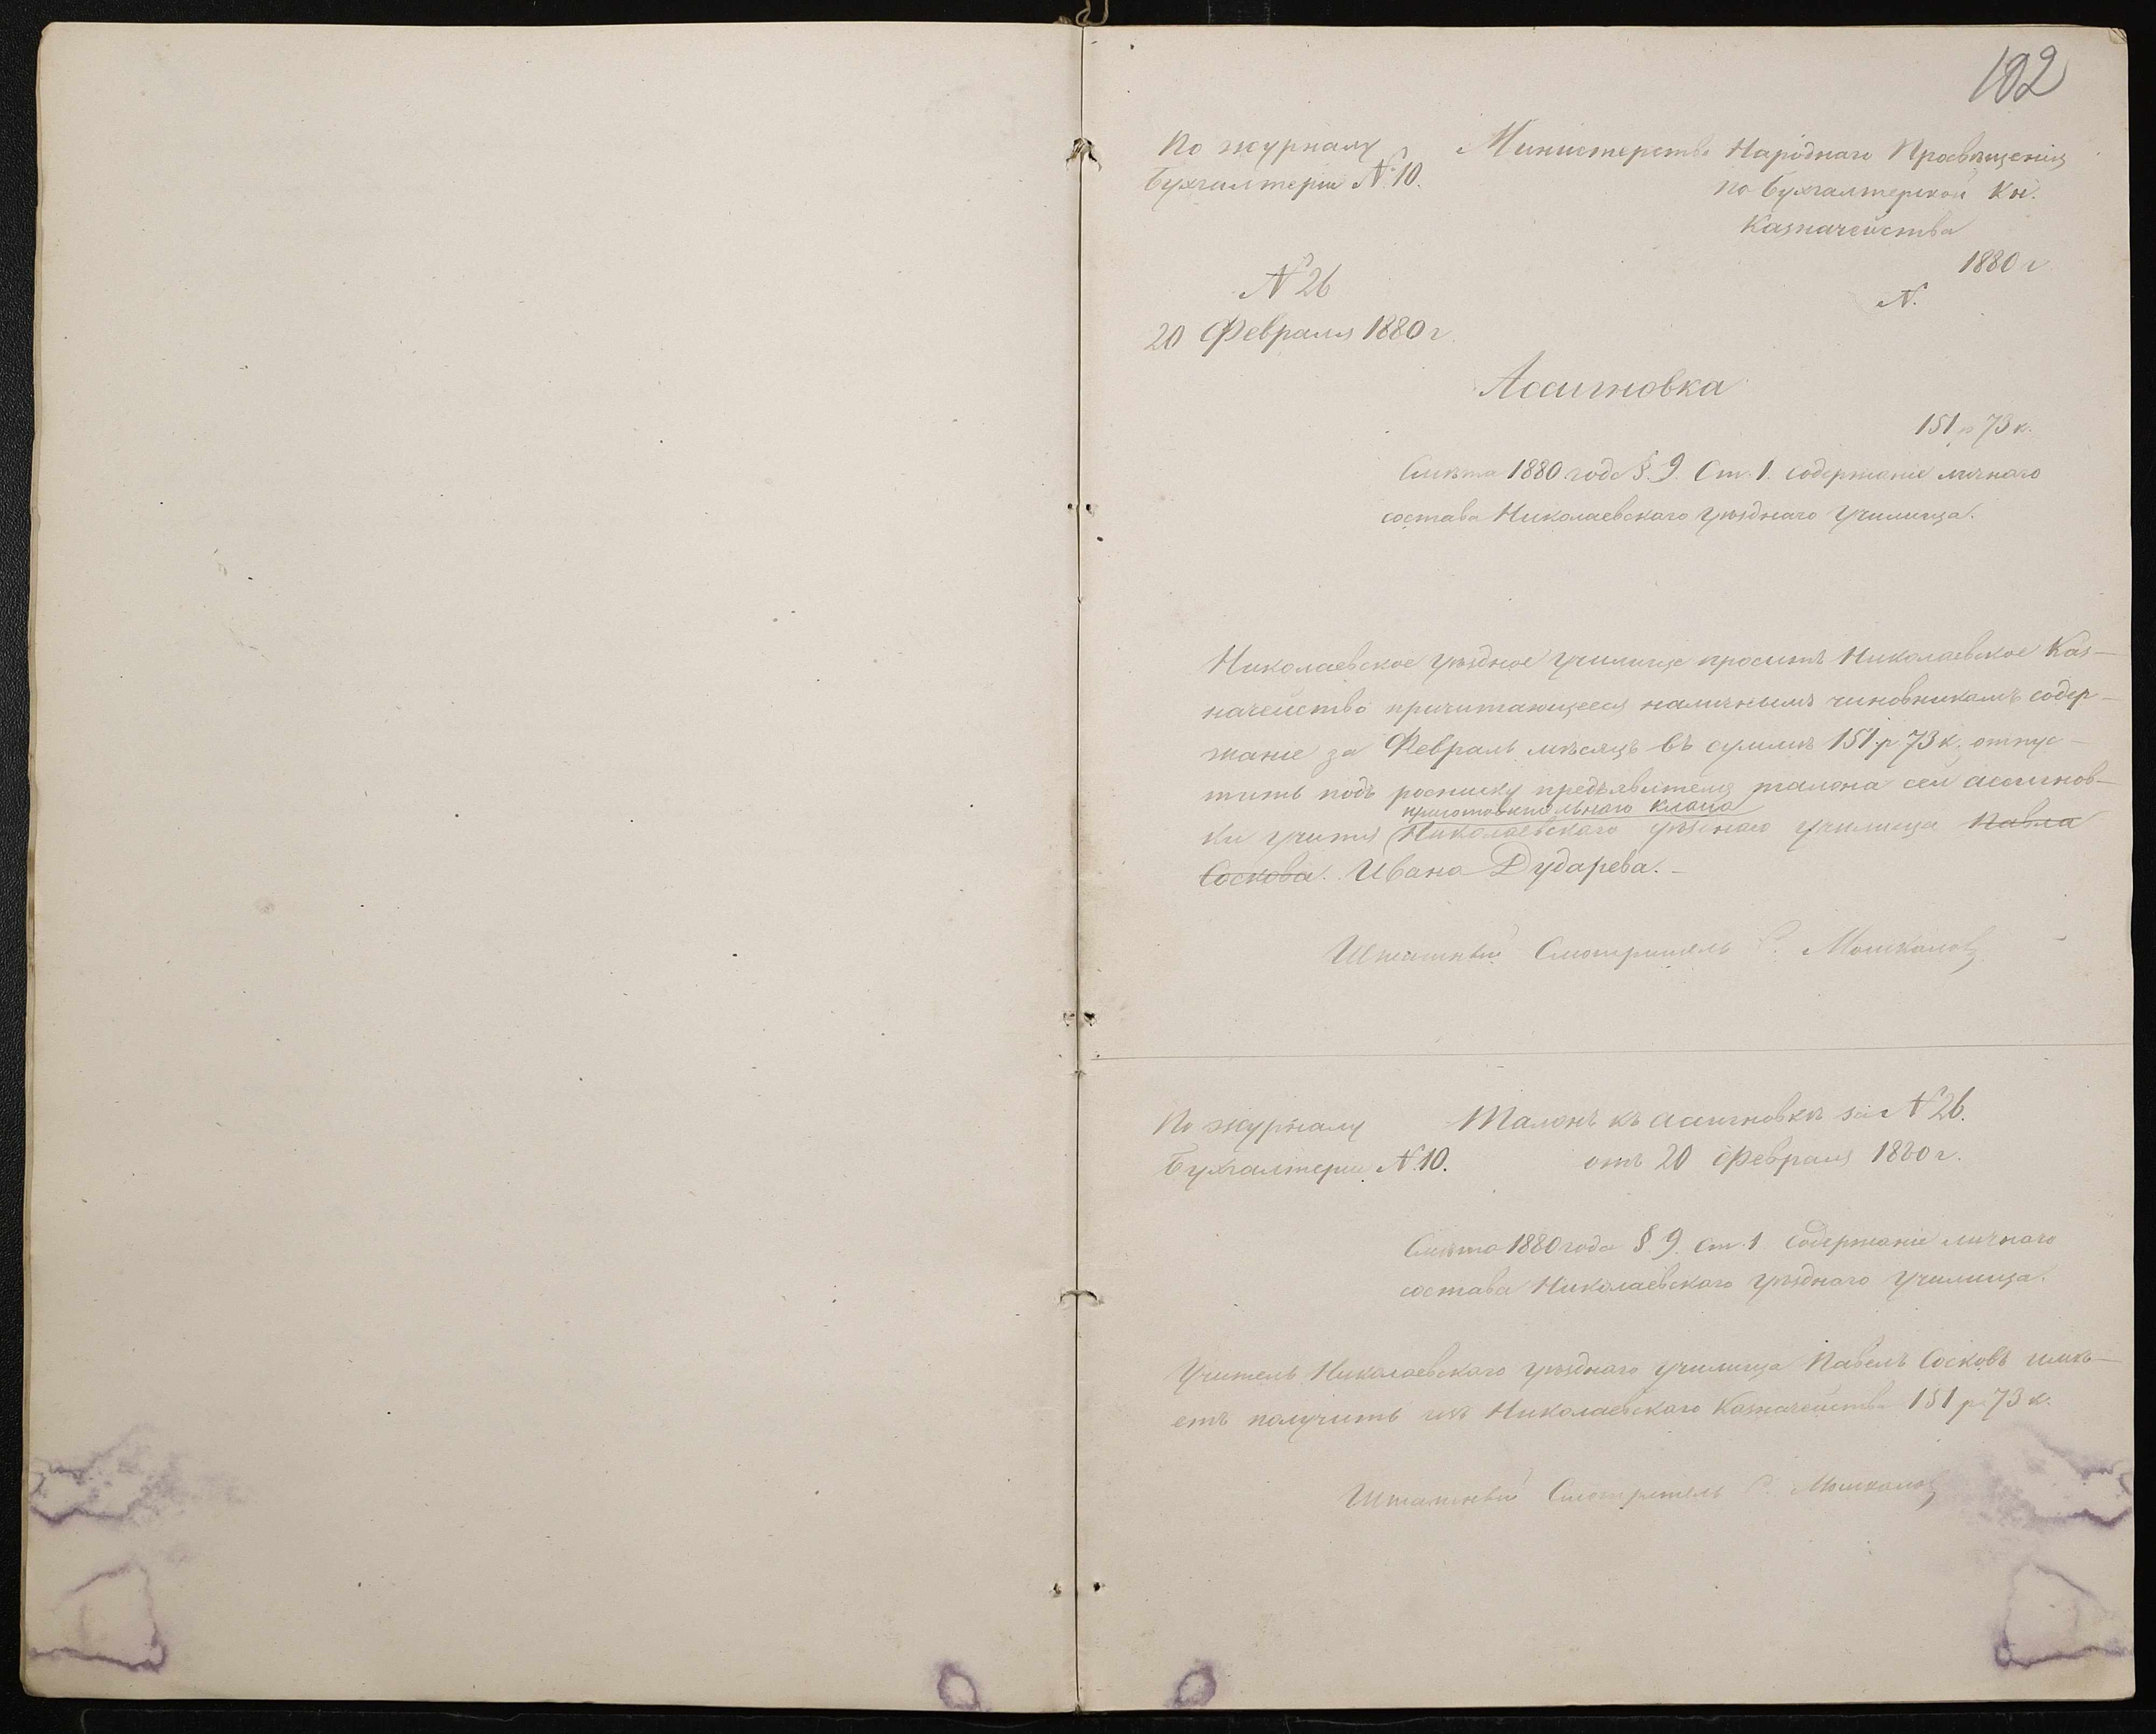 102
По журналу
Бухгалтеріи №10.
Министерство Народнаго Просвѣщенія
по бухгалтерской Кн.
Казначейства
1880 г
N.
№ 26
20 Февраля 1880 г.
Ассигновка
151 р 73 к.
Смѣта 1880 года §. 9. Ст. 1. содержаніе личнаго
состава Николаевскаго уѣзднаго училища.
Николаевское уѣздное училище проситъ Николаевское Каз-
начейство причитающееся наличнымъ чиновникамъ содер-
жаніе за Февраль мѣсяцъ въ суммѣ 151 р 73 к. отпус-
тить подъ росписку предъявителя талона сей ассигнов-
приготовительнаго класса
ки Николаевскаго уѣзднаго училища Павла
Соскова. Ивана Дударева.-
Штатный Смотритель
По журналу
Бухгалтеріи №10.
Талонъ къ ассигновкѣ за № 26.
отъ 20 Февраля 1880 г.
Смѣта 1880 года §. 9. ст. 1. Содержаніе личнаго
состава Николаевскаго уѣзднаго училища.
Учитель Николаевскаго уѣзднаго училища Павелъ Сосковъ имѣ-
етъ получить изъ Николаевскаго Казначейства 151 р 73 к.
Штатный Смотритель